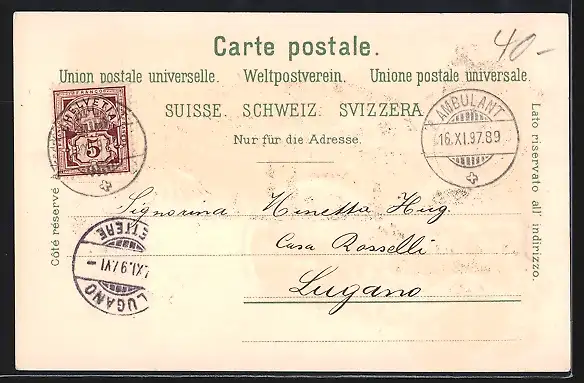 40-
Carte postale.
Union postale universelle. Weltpostverein. Unione postale universale.
SUISSE. SCHWEIZ. SVIZZERA
Nur für die Adresse.
FRANCO
HELVETIA
5
AMBULANT
16.XI.97.89
Côté réservé
Lato riservato all' indirizzo.
Signorina Ninetta Hug.
Casa Rosselli
Lugano
LETTERE
.XI.97.VI-
LUGANO